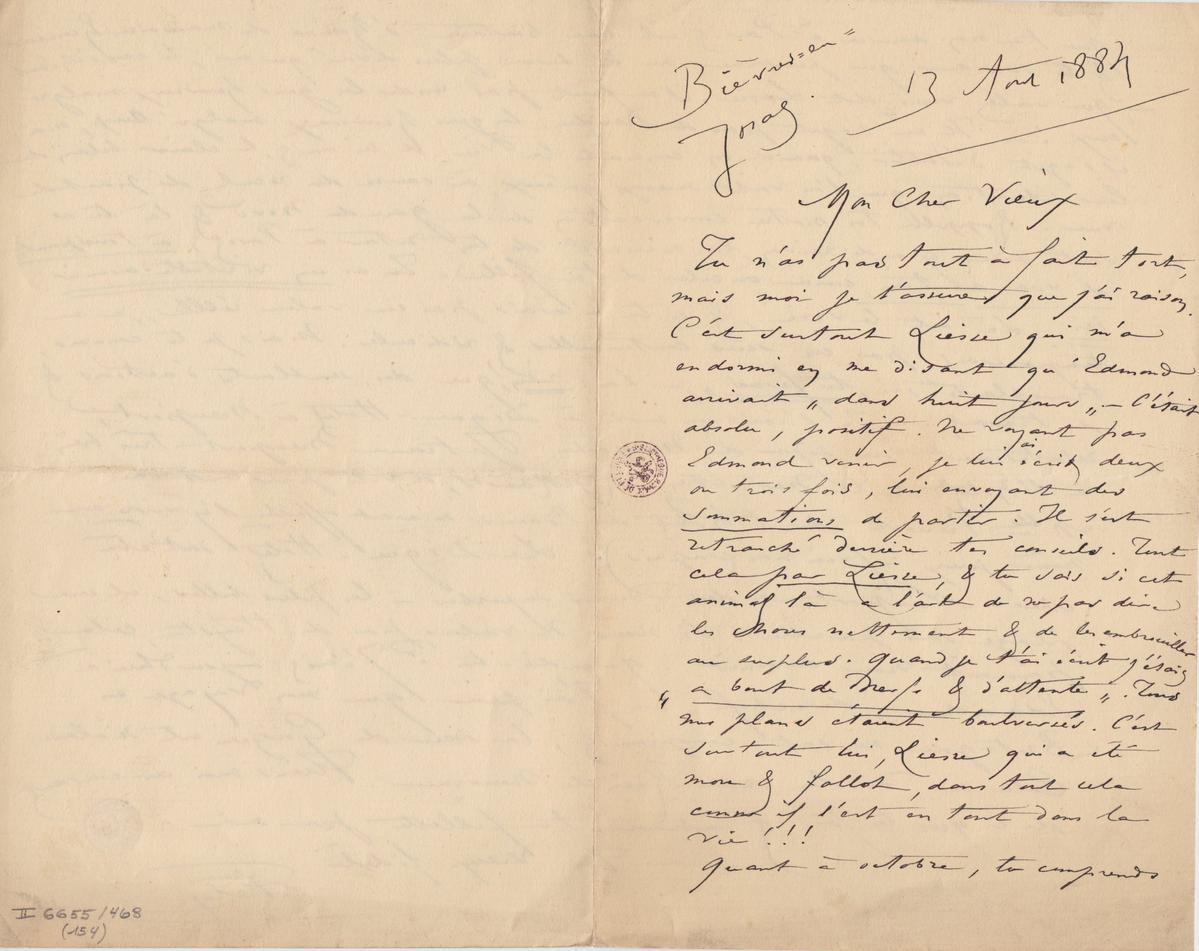 Bièvres=en=
13 Aout 1884
Mon Cher Vieux
Tu n'as pas tout à fait tort,
mais moi je t'assure que j'ai raison.
C'est surtout Liesse qui m'a
endormi en me disant qu'Edmond
arrivait „ dans huit jours „ – C'était
absolu, positif. Ne voyant pas
Edmond venir, je lui ai écrit deux
ou trois fois, lui envoyant des
sommations de partir. Il s'est
retranché derrière tes conseils. Tout
cela par Liesse, & tu sais si cet
animal là a l'art de ne pas dire
les choses nettement & de les embrouiller
au surplus. Quand je t'ai écrit j'étais
„ a bout de nerfs & d'attente „. Tous
nos plans étaient bouleversés. C'est
surtout lui, Liesse qui a été
mou & fallot, dans tout cela
comme il l'est en tout dans la
vie !!!
Quant à octobre, tu comprends
II 6655/468
(154)